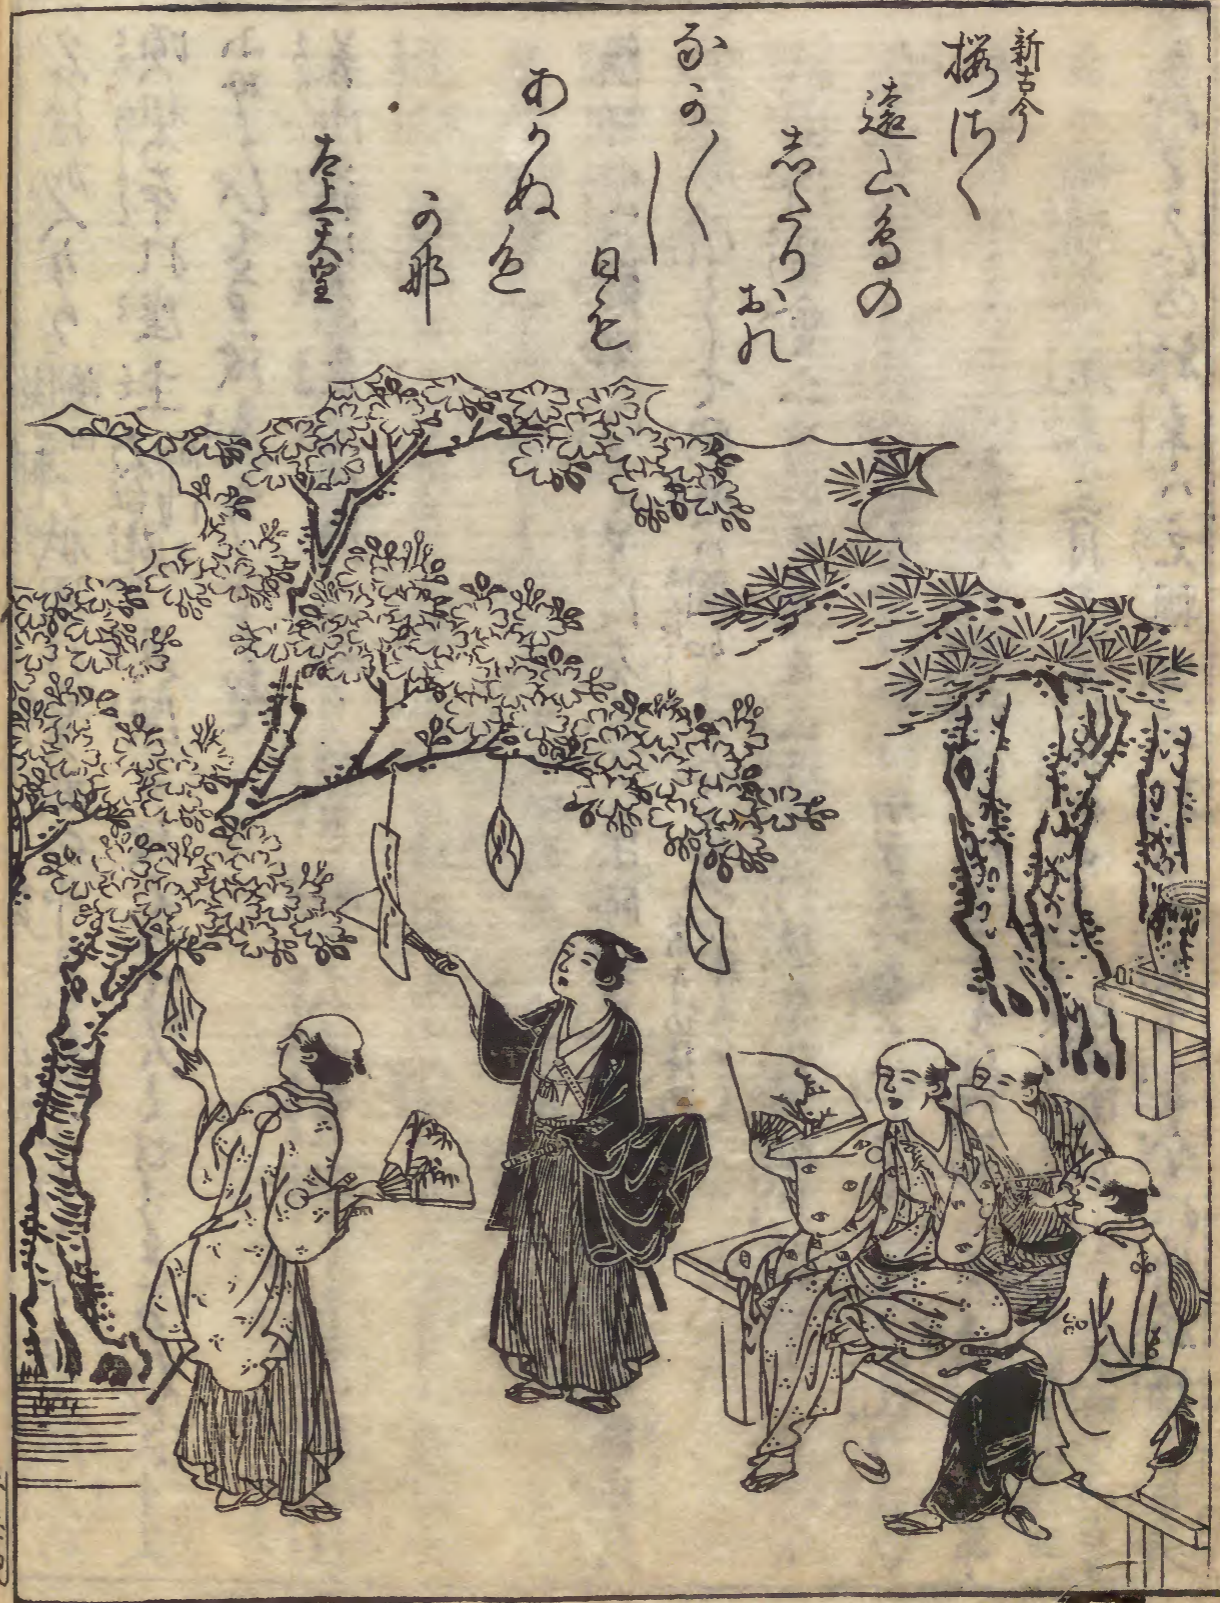 新古今
桜さく
遠山鳥の
志たり
おの
なか〱
し
日も
あかぬ色
か那
太上天皇